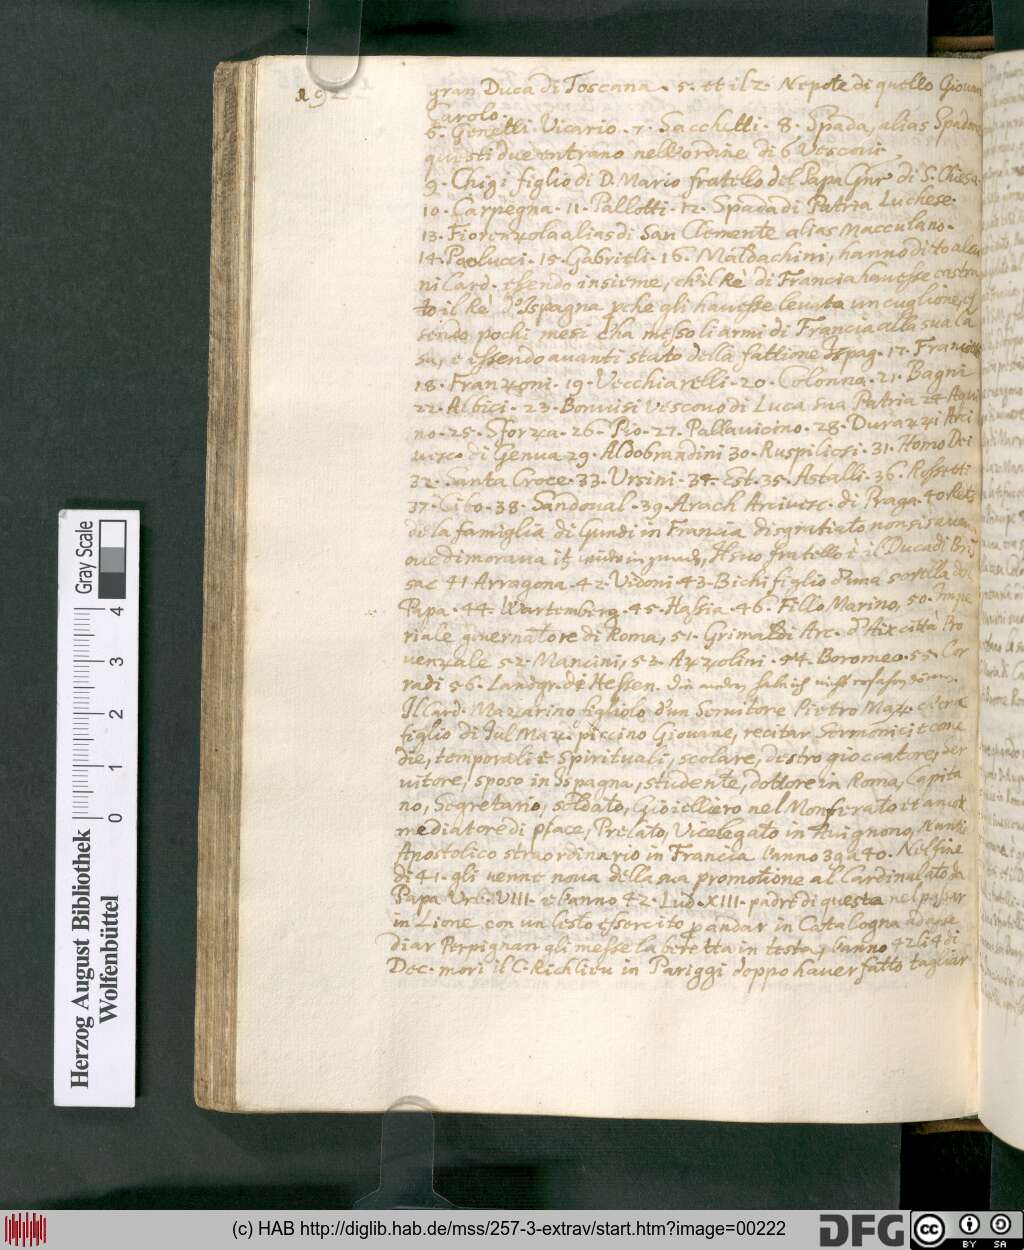 192
gran Duca di Toscana. 5. et il 2. Nepote di quello Giovan
Carolo.
6. Ginetti. Vicario. 7. Sacchetti. 8. Spada, alias Spadone
questi due entrano nell'ordine di 6 Vescovi.
9. Chigi figlio di D. Mario fratello del Papa Gnr di S. Chiesa
10. Carpegna. 11. Pallotti. 12. Spada di Patria Luchese.
13. Fiorenzola alias di San Clemente alias Macculano.
14. Paolucci. 15. Gabrieli. 16. Maldachini, hanno dito alcu
ni Card. essendo insieme, ch'il Rè di Francia havesse castra
to il Rè d'Ispagna pche gli havesse levata un cuglione, es
sendo pochi mesi ch'ha messo li armi di Francia alla sua ca
sa, e essendo avanti stato della fattione Ispag. 17. Franciotti
18. Franzoni. 19. Vecchiarelli. 20. Colonna. 21. Bagni
22. Albici. 23. Bonvisi Vescovo di Luca sua Patria 24 Aqui
no. 25. Sforza. 26. Pio. 27. Pallavicino. 28. Durazzi Arci
vesc. di Genua 29. Aldobrandini 30. Ruspiliosi. 31. Homo Dei
32. Santa Croce. 33. Ursini. 34. Est. 35. Astalli. 36. Rossetti
37. Cibo. 38. Sandoval. 39. Arach Arcivesc. di Praga. 40 Retz
de la famiglia di Gundi in Francia disgratiato non si seva
ove dimorava it suo fratello è il Duca di Bri
sac 41 Arragona. 42. Vidoni 43. Bichi figlio d'una sorella del
Papa. 44. Wartemberg. 45. Hassia. 46. Fillo Marino, 50. Impe
riale guernatore di Roma, 51. Grimaldi Arc. d'Aix città Pro
venzale 52. Mancini, 53. Azzolini. 54. Boromeo. 55. Cor
radi 56. Landgr. di Hessen. Die andern hab ich nicht erfahren können.
Il Card. Mazzarino figliolo d'un Servitore Pietro Maz. ch'era
figlio di Jul Maz. piccino Giovane, recitar Sermoni, et come
die, temporali e Spirituali, scolare, destro gioccatore, ser
vitore, sposo in Ispagna, studente, dottore in Roma, Capita
no, Segretario, soldato, Gioielliero nel Monferato et ancor
mediatore di piace, Prelato, Vicelegato in Avignono, Nunti
Apostolico straordinario in Francia l'anno 39 a 40. Nel fine
di 41. gli venne nova della sua promotione al Cardinalato da
Papa Urb. VIII. e l'anno 42. Lud. XIII. padre di questa nel passar
in Lione con un lesto essercito p andar in Catalogna
diar Perpignan gli messe la beretta in testa, l'anno 42 li 4 di
Dec. mori il C. Richlieu in Pariggi doppo haver fatto tagliar
Herzog August Bibliothek
Wolfenbüttel
Gray Scale
0 1 2 3 4
(c) HAB http://diglib.hab.de/mss/257-3-extrav/start.htm?image=00222
DFG
cc BY SA